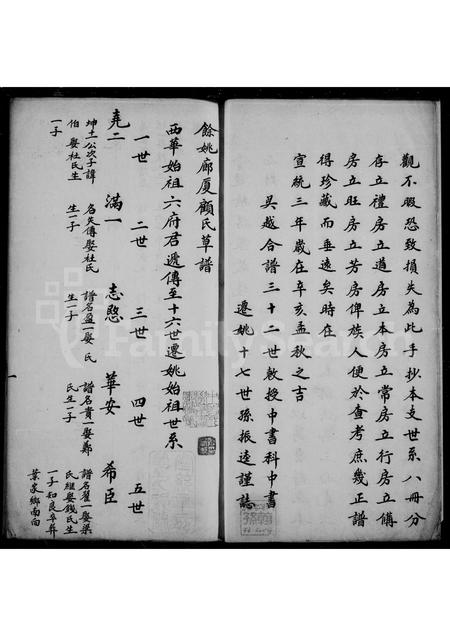 觀不暇恐致損失為此手抄本支世系八冊分
存立禮房立道房立本房立常房立行房立傳
房立旺房立芳房俾族人便於查考庶幾正譜
得珍藏而垂遠矣時在
宣統三年歲在辛亥孟秋之吉
吳越合譜三十二世教授中書科中書
遷姚十七世孫振遠謹誌
餘姚廊厦顧氏草譜
西華始祖六府君遞傳至十六世遷姚始祖世系
一世 二世 三世 四世 五世
堯二 滿一 志愍 華安 希臣
坤土公次子諱
伯 娶杜氏生
一子
名失傳娶杜氏
生一子
譜名盈一娶 氏
生一子
譜名貴一娶鄭
氏生一子
譜名 一娶柒
氏繼娶錢氏生
一子知良卒葬
葉家鄉南向
FamilySearch